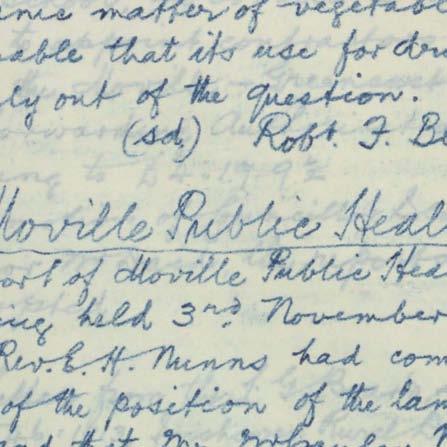 matter of vegetab
able that its use for
ly out of the question.
(sd.) Robt. F. B
Moville Public Heal
ort of Moville Public Hea
ing held 3rd November
Rev. E. H. Nunns had com
of the position of the lan
that Mr.